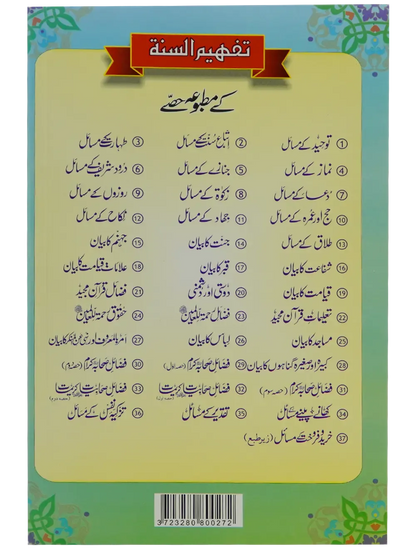 تفہیم السنۃ
کے مطبوعہ حصّے
① توحید کے مسائل ② اتباع سنت کے مسائل ③ طہارت کے مسائل
④ نماز کے مسائل ⑤ جنازے کے مسائل ⑥ درود شریف کے مسائل
⑦ دُعا کے مسائل ⑧ زکوٰۃ کے مسائل ⑨ روزوں کے مسائل
⑩ حج اور عمرہ کے مسائل ⑪ جہاد کے مسائل ⑫ نکاح کے مسائل
⑬ طلاق کے مسائل ⑭ جنت کا بیان ⑮ جہنم کا بیان
⑯ شفاعت کا بیان ⑰ قبر کا بیان ⑱ علامات قیامت کا بیان
⑲ قیامت کا بیان ⑳ دوستی اور دشمنی ㉑ فضائل قرآن مجید
㉒ تعلیمات قرآن مجید ㉓ فضائل رحمۃ للعالمین ㉔ حقوق رحمۃ للعالمین
㉕ مساجد کا بیان ㉖ لباس کا بیان ㉗ امر بالمعروف اور نہی عن المنکر کا بیان
㉘ کبیرہ اور صغیرہ گناہوں کا بیان ㉙ فضائل صحابہ کرام (حصہ اول) ㉚ فضائل صحابہ کرام (حصہ دوم)
㉛ فضائل صحابہ کرام (حصہ سوم) ㉜ فضائل صحابیات ㉝ فضائل صحابیات
㉞ کھانے پینے کے مسائل ㉟ تقدیر کے مسائل ㊱ تزکیہ نفس کے مسائل
㊲ خرید و فروخت کے مسائل (زیر طبع)
3723280800272